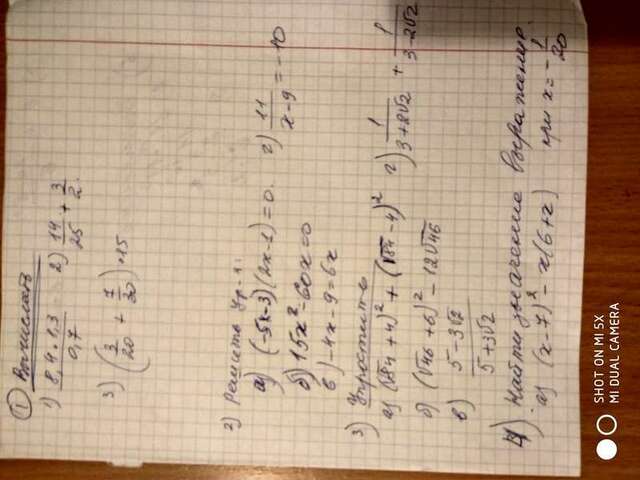 ① Вычислить
1) 8,4 · 1,3 / 0,7 2) 14/25 + 3/2.
3) (3/20 + 7/30) · 15
2) решить ур-я:
а) (-5x-3)(2x-1)=0. г) 11/(x-9) = -10
б) 15x² - 60x = 0
в) -4x - 9 = 6x
3) Упростить
а) (√84 + 4)² + (√84 - 4)² г) 1/(3+8√2) + 1/(3-2√2)
б) (√46 + 6)² - 12√46
в) (5 - 3√2)/(5 + 3√2)
4) Найти значение выражения.
а) (x-7)² - x(6+x) при x = -1/20
SHOT ON MI 5X
MI DUAL CAMERA